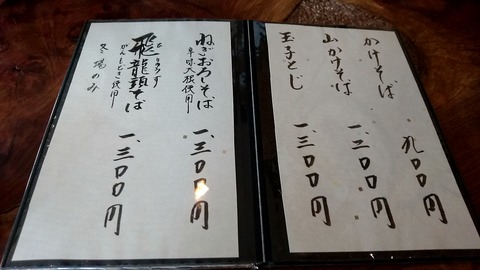 かけそば 九〇〇円
山かけそば 一、二〇〇円
玉子とじ 一、三〇〇円
ねぎおろしそば 一、三〇〇円
辛味大根使用
飛龍頭そば 一、三〇〇円
がんもどき使用
冬場のみ